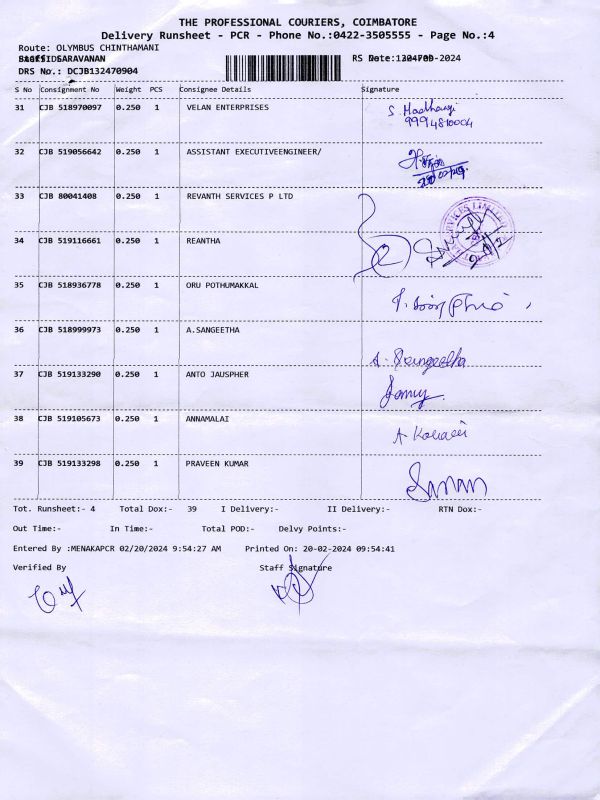 THE PROFESSIONAL COURIERS, COIMBATORE
Delivery Runsheet - PCR - Phone No.:0422-3505555 - Page No.:4
Route: OLYMBUS CHINTHAMANI
SARAVANAN RS Date: -2024
DRS No.: DCJB132470904
S No Consignment No Weight PCS Consignee Details Signature
31 CJB 518970097 0.250 1 VELAN ENTERPRISES S
9994810004
32 CJB 519056642 0.250 1 ASSISTANT EXECUTIVEENGINEER/
33 CJB 80041408 0.250 1 REVANTH SERVICES P LTD
34 CJB 519116661 0.250 1 REANTHA
35 CJB 518936778 0.250 1 ORU POTHUMAKKAL
36 CJB 518999973 0.250 1 A.SANGEETHA A. Sangeetha
37 CJB 519133290 0.250 1 ANTO JAUSPHER
38 CJB 519105673 0.250 1 ANNAMALAI
39 CJB 519133298 0.250 1 PRAVEEN KUMAR
Tot. Runsheet:- 4 Total Dox:- 39 I Delivery:- II Delivery:- RTN Dox:-
Out Time:- In Time:- Total POD:- Delvy Points:-
Entered By :MENAKAPCR 02/20/2024 9:54:27 AM Printed On: 20-02-2024 09:54:41
Verified By Staff Signature